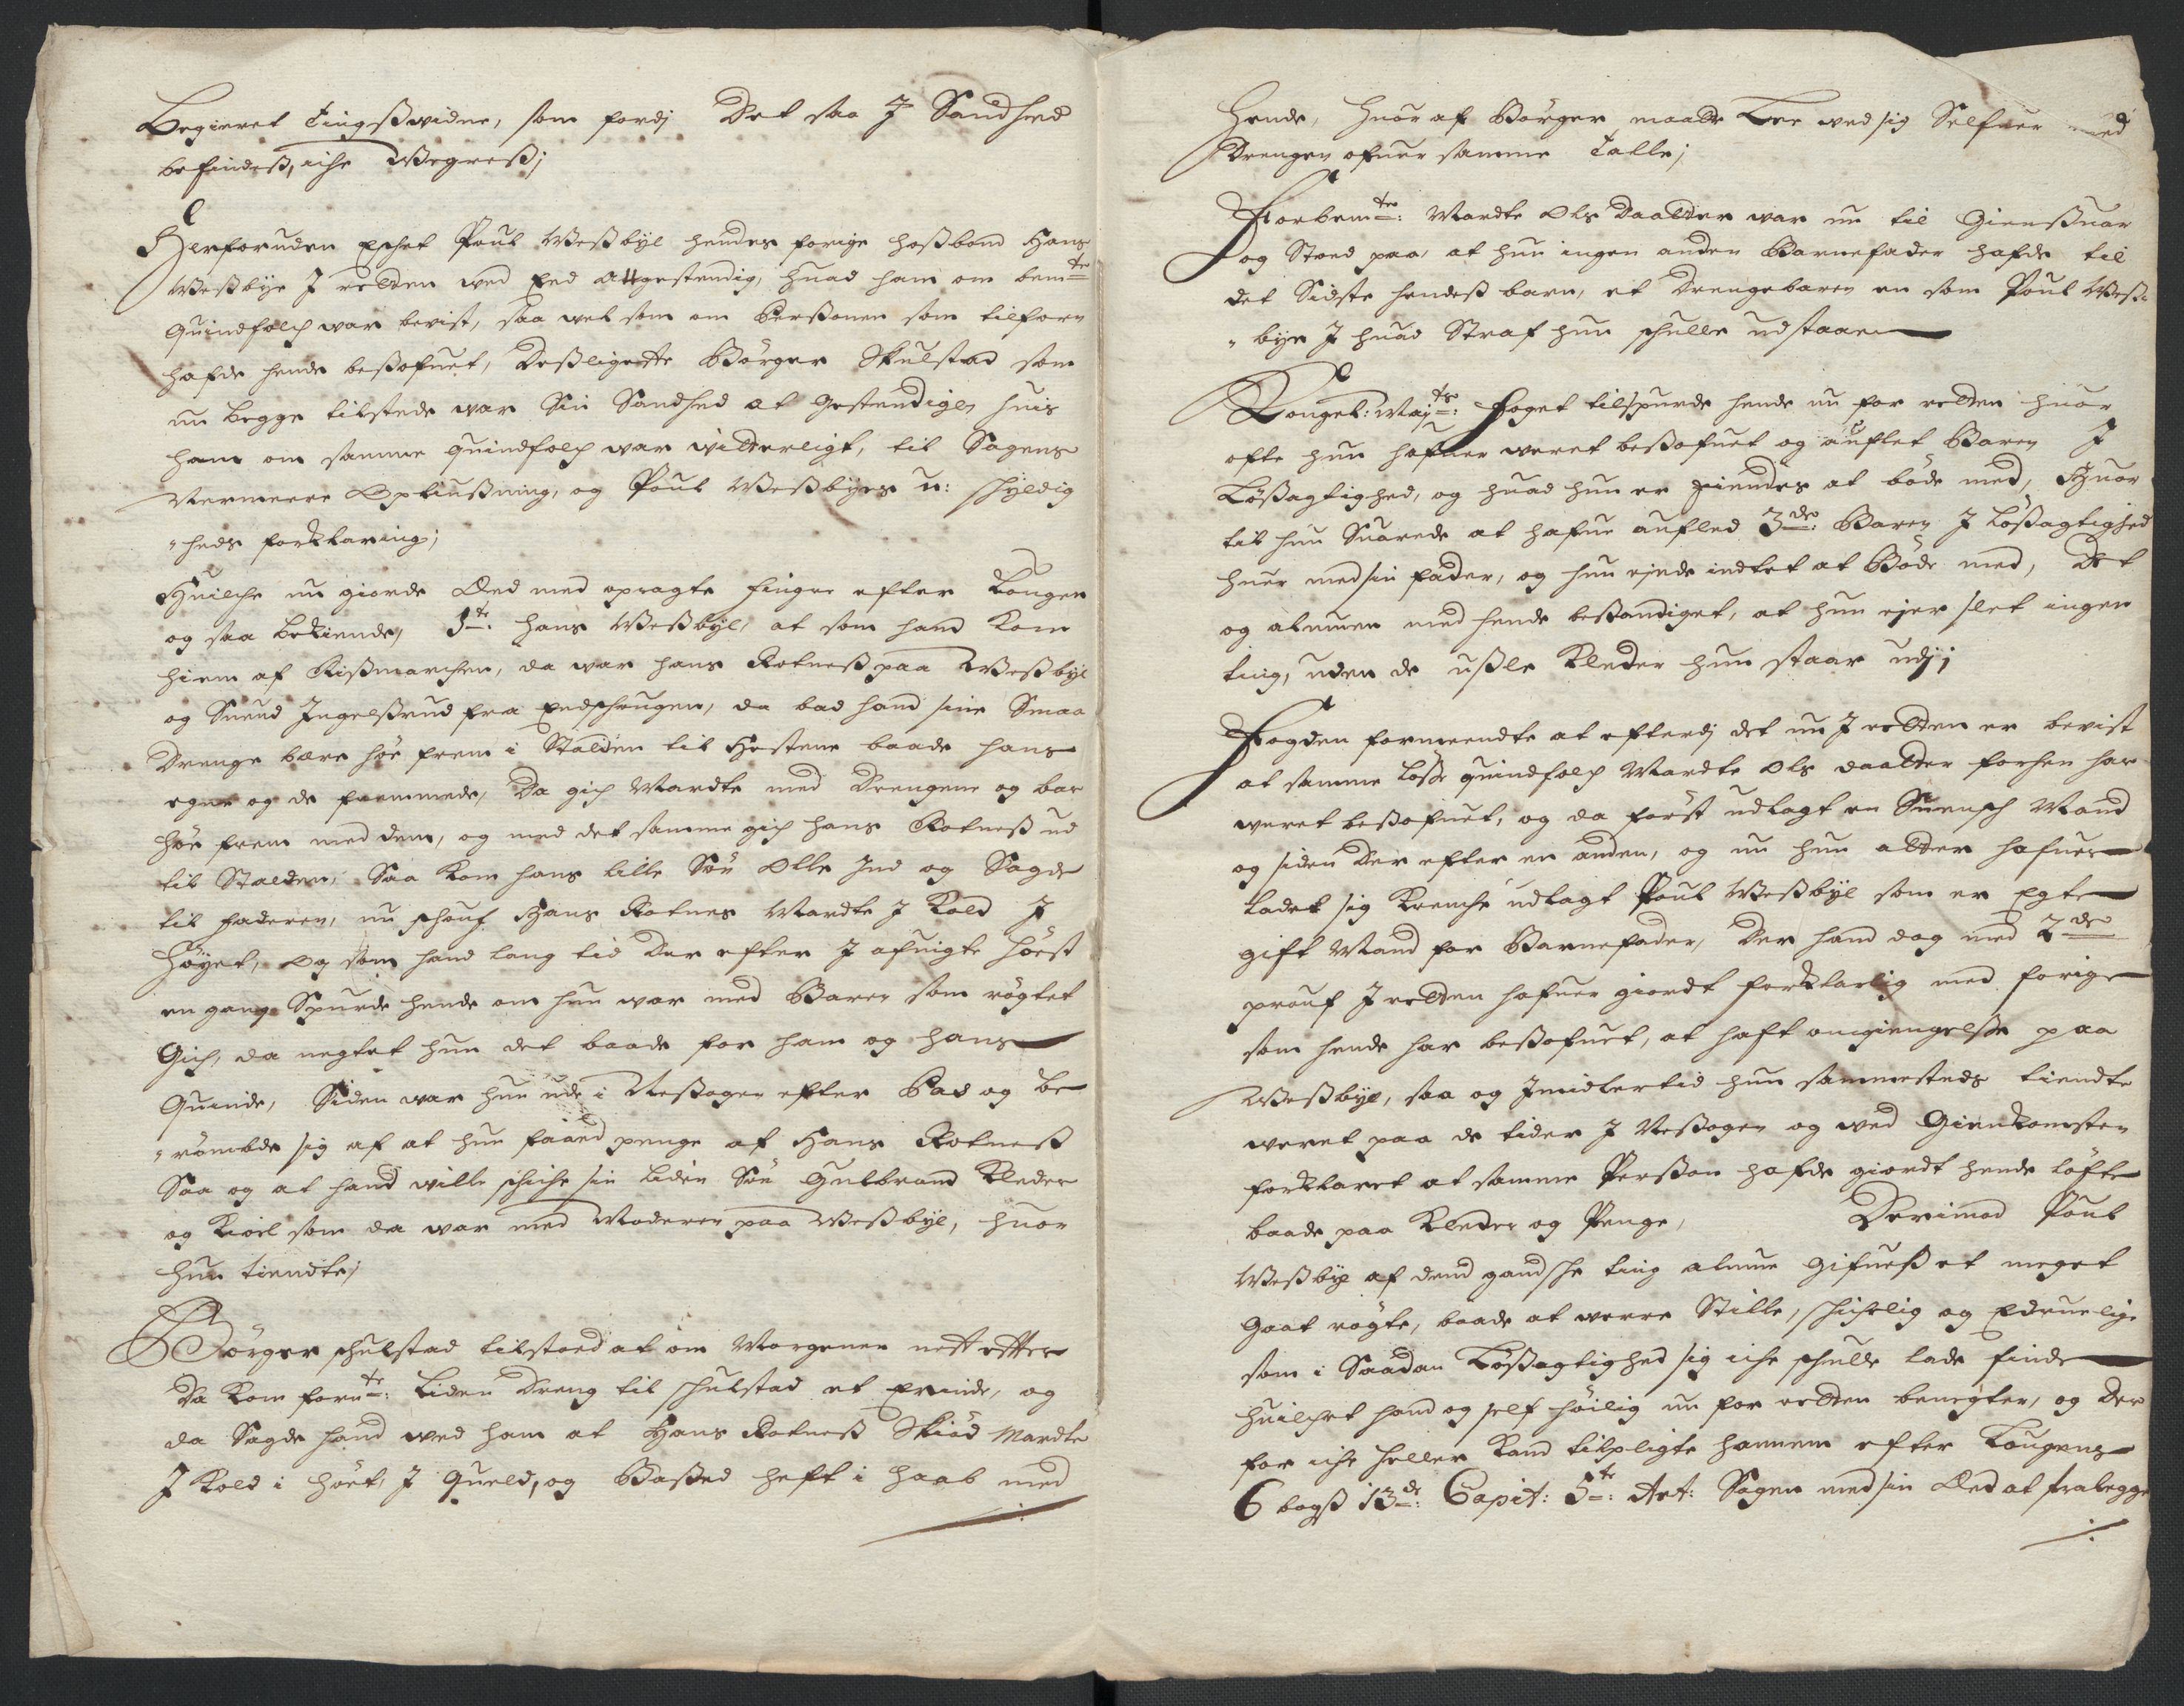 Begieret Tingsvidne, som fordj Det saa J Sandhed
befindes, iche Wegres;
Herforuden Eschet Poul Wesbÿe hendes forige hosbond Hans
Wesbÿe J retten ved Eed att gestendig, huad ham om bem:te
Quindfolch war bevist, saa vel som om Personen som tilforn
hafde hende besofuet, Desligeste Börger Skulstad som
nu begge tilstede war Sin Sandhed at Gestendige, huis
ham om samme quindfolch war vitterligt, til Sagens
Nermeere Opliusning, og Poul Wesbÿes u: schÿldig
"heds forklaring;
Huilche nu giorde Eed med opragte fingre efter Lougen
og saa bekiende, 1te: Hans Wesbÿe, at som hand kom
hiem af Rismarchen, da war Hans Rotnes paa Wesbÿe
og Suend Jngelsrud fra Eedschougen, da bad hand sine Smaa
Drenge bære höe frem i Stalden til Hestene baade hans
egne og de fremmede, Da gich Mardte med Drengene og bar
höe frem med dem, og med det samme gich Hans Rotnes ud
til Stalden, Saa kom hans lille Sön Olle Jnd og Sagde
til faderen, nu schouf Hans Rotnes Mardte J Kold J
Höyet, Og som hand lang tid Der efter J afuigte Höest
en gang Spurde hende om hun war med Baren som rögtet
Gich, da negtet hun det baade for ham og hans
Quinde, Siden war hun ude i Nessogen efter Bad og be
"römbde sig af at hun faaed penge af Hans Rotnes
Saa og at hand wille schiche sin liden Sön Gulbrand Kleder
og Kioel som da war med Moderen paa Wesbÿe, huor
hun tiendte;
Börger schulstad tilstoed at om Morgenen nest etter
da kom forn:te: liden Dreng til schulstad et Erinde, og
da Sagde hand ved ham at Hans Rotnes Skiöd Mardte
J Kold i höet, J Queld, og Basked heft i haab med
Hende, huor af Börger maatte Lee ved sig Selfuer med
Drengen ofuer samme Talle;
Forbem:te: Mardte Ols Daatter war nu til Giensuar
og Stoed paa, at hun ingen anden Barnefader hafde til
det Sidste hendes barn, et Drengebaren en som Poul Wes-
"bye J huad Straf hun schulle udstaae
Kongel: Maj:ts: foget tilspurde hende nu for retten huor
ofte hun hafuer weret besofuet og auflet Baren J
Lösagtighed, og huad hun er eiendes at böde med, Huor
til hun Suarede at hafue aufled 3de: Baren J lösagtighed
huer med sin fader, og hun ejede indtet at Böde med, Det
og almuen med hende bestandiget, at hun ejer slet ingen
ting, uden de usle Kleder hun staar udj;
Fogden formeendte at efterdj det nu J retten er bevist
at samme löse quindfolch Mardte Ols daatter forhen har
weret besofuet, og da först udlagt en Suensch Mand
og siden Der efter en anden, og nu hun atter hafuer
ladet sig krenche udlagt Poul Wesbÿe som er Egte
gift Mand for Barnefader, Der hand dog med 2de
prouf J retten hafuer giordt forklarlig med forige
som hende har besofuet, at haft omgiengelse paa
Wesbÿe, saa og Jmidlertid hun sammesteds tiendte
weret paa de tider J Nessogen og ved Gienkomsten
forklaret at samme Person hafde giordt hende löfte
baade paa Kleder og Penge, Derimod Poul
Wesbÿe af dend gandsche ting almue Gifues et meget
Gaat rögte, baade at werre Stille, schichelig og Edruelig
som i Saadan Lösagtighed sig iche schulle lade finde
huilchet hand og self höilig nu for retten benegter, og Der
for iche heller kand tilpligte hannem efter Lougens
6 bogs 13de: Capit: 5te: Art: Sagen med sin Eed at fralegge